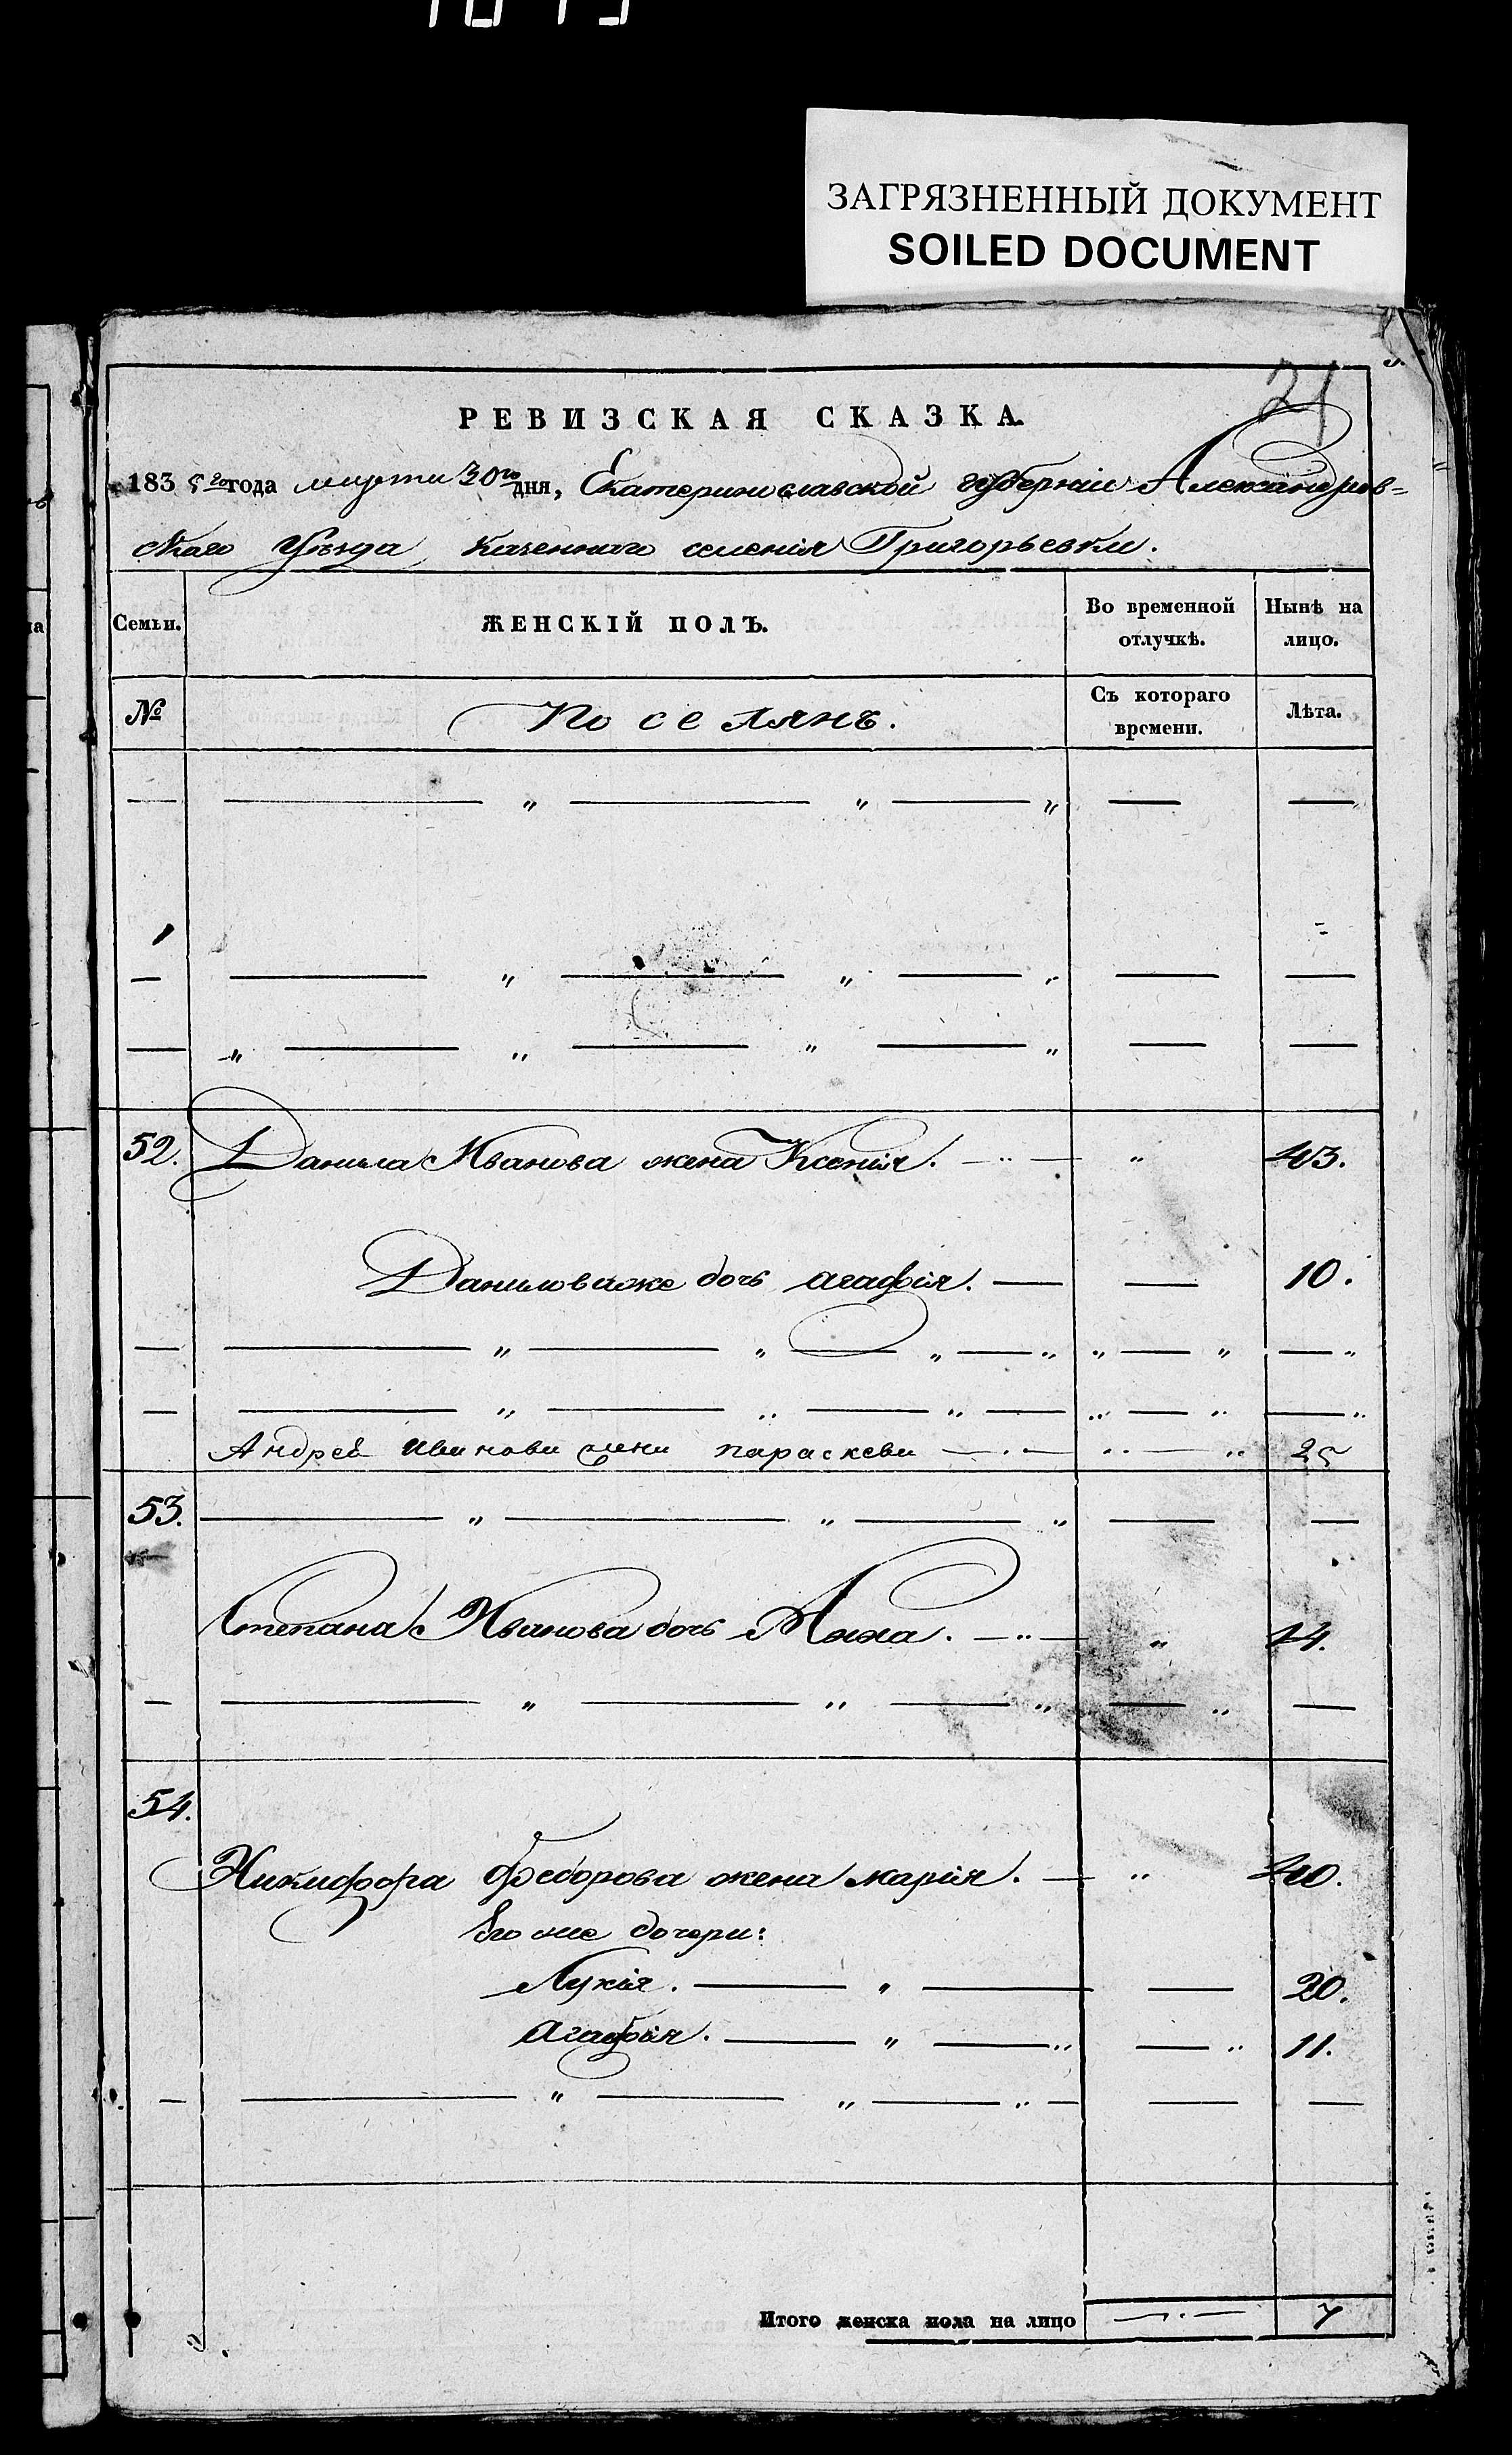 ЗАГРЯЗНЕННЫЙ ДОКУМЕНТ
SOILED DOCUMENT
21
РЕВИЗСКАЯ СКАЗКА.
1835го года марта 30го дня, Екатеринославской губерніи Александров=
скаго Уѣзда, казеннаго селенія Григорьевки.
Семьи. ЖЕНСКІЙ ПОЛЪ. Во временной отлучкѣ. Нынѣ на лицо.
№ Поселянъ. Съ котораго времени. Лѣта.
52. Данила Иванова жена Ксенія. 43.
Данилова же дочь Агафія. 10.
Андрея Иванова жена Параскева 25
53.
Степана Иванова дочь Анна. 14.
54.
Никифора Федорова жена Марія. 40.
Его же дочери:
Лукія. 20.
Агафія. 11.
Итого женска пола на лицо 7